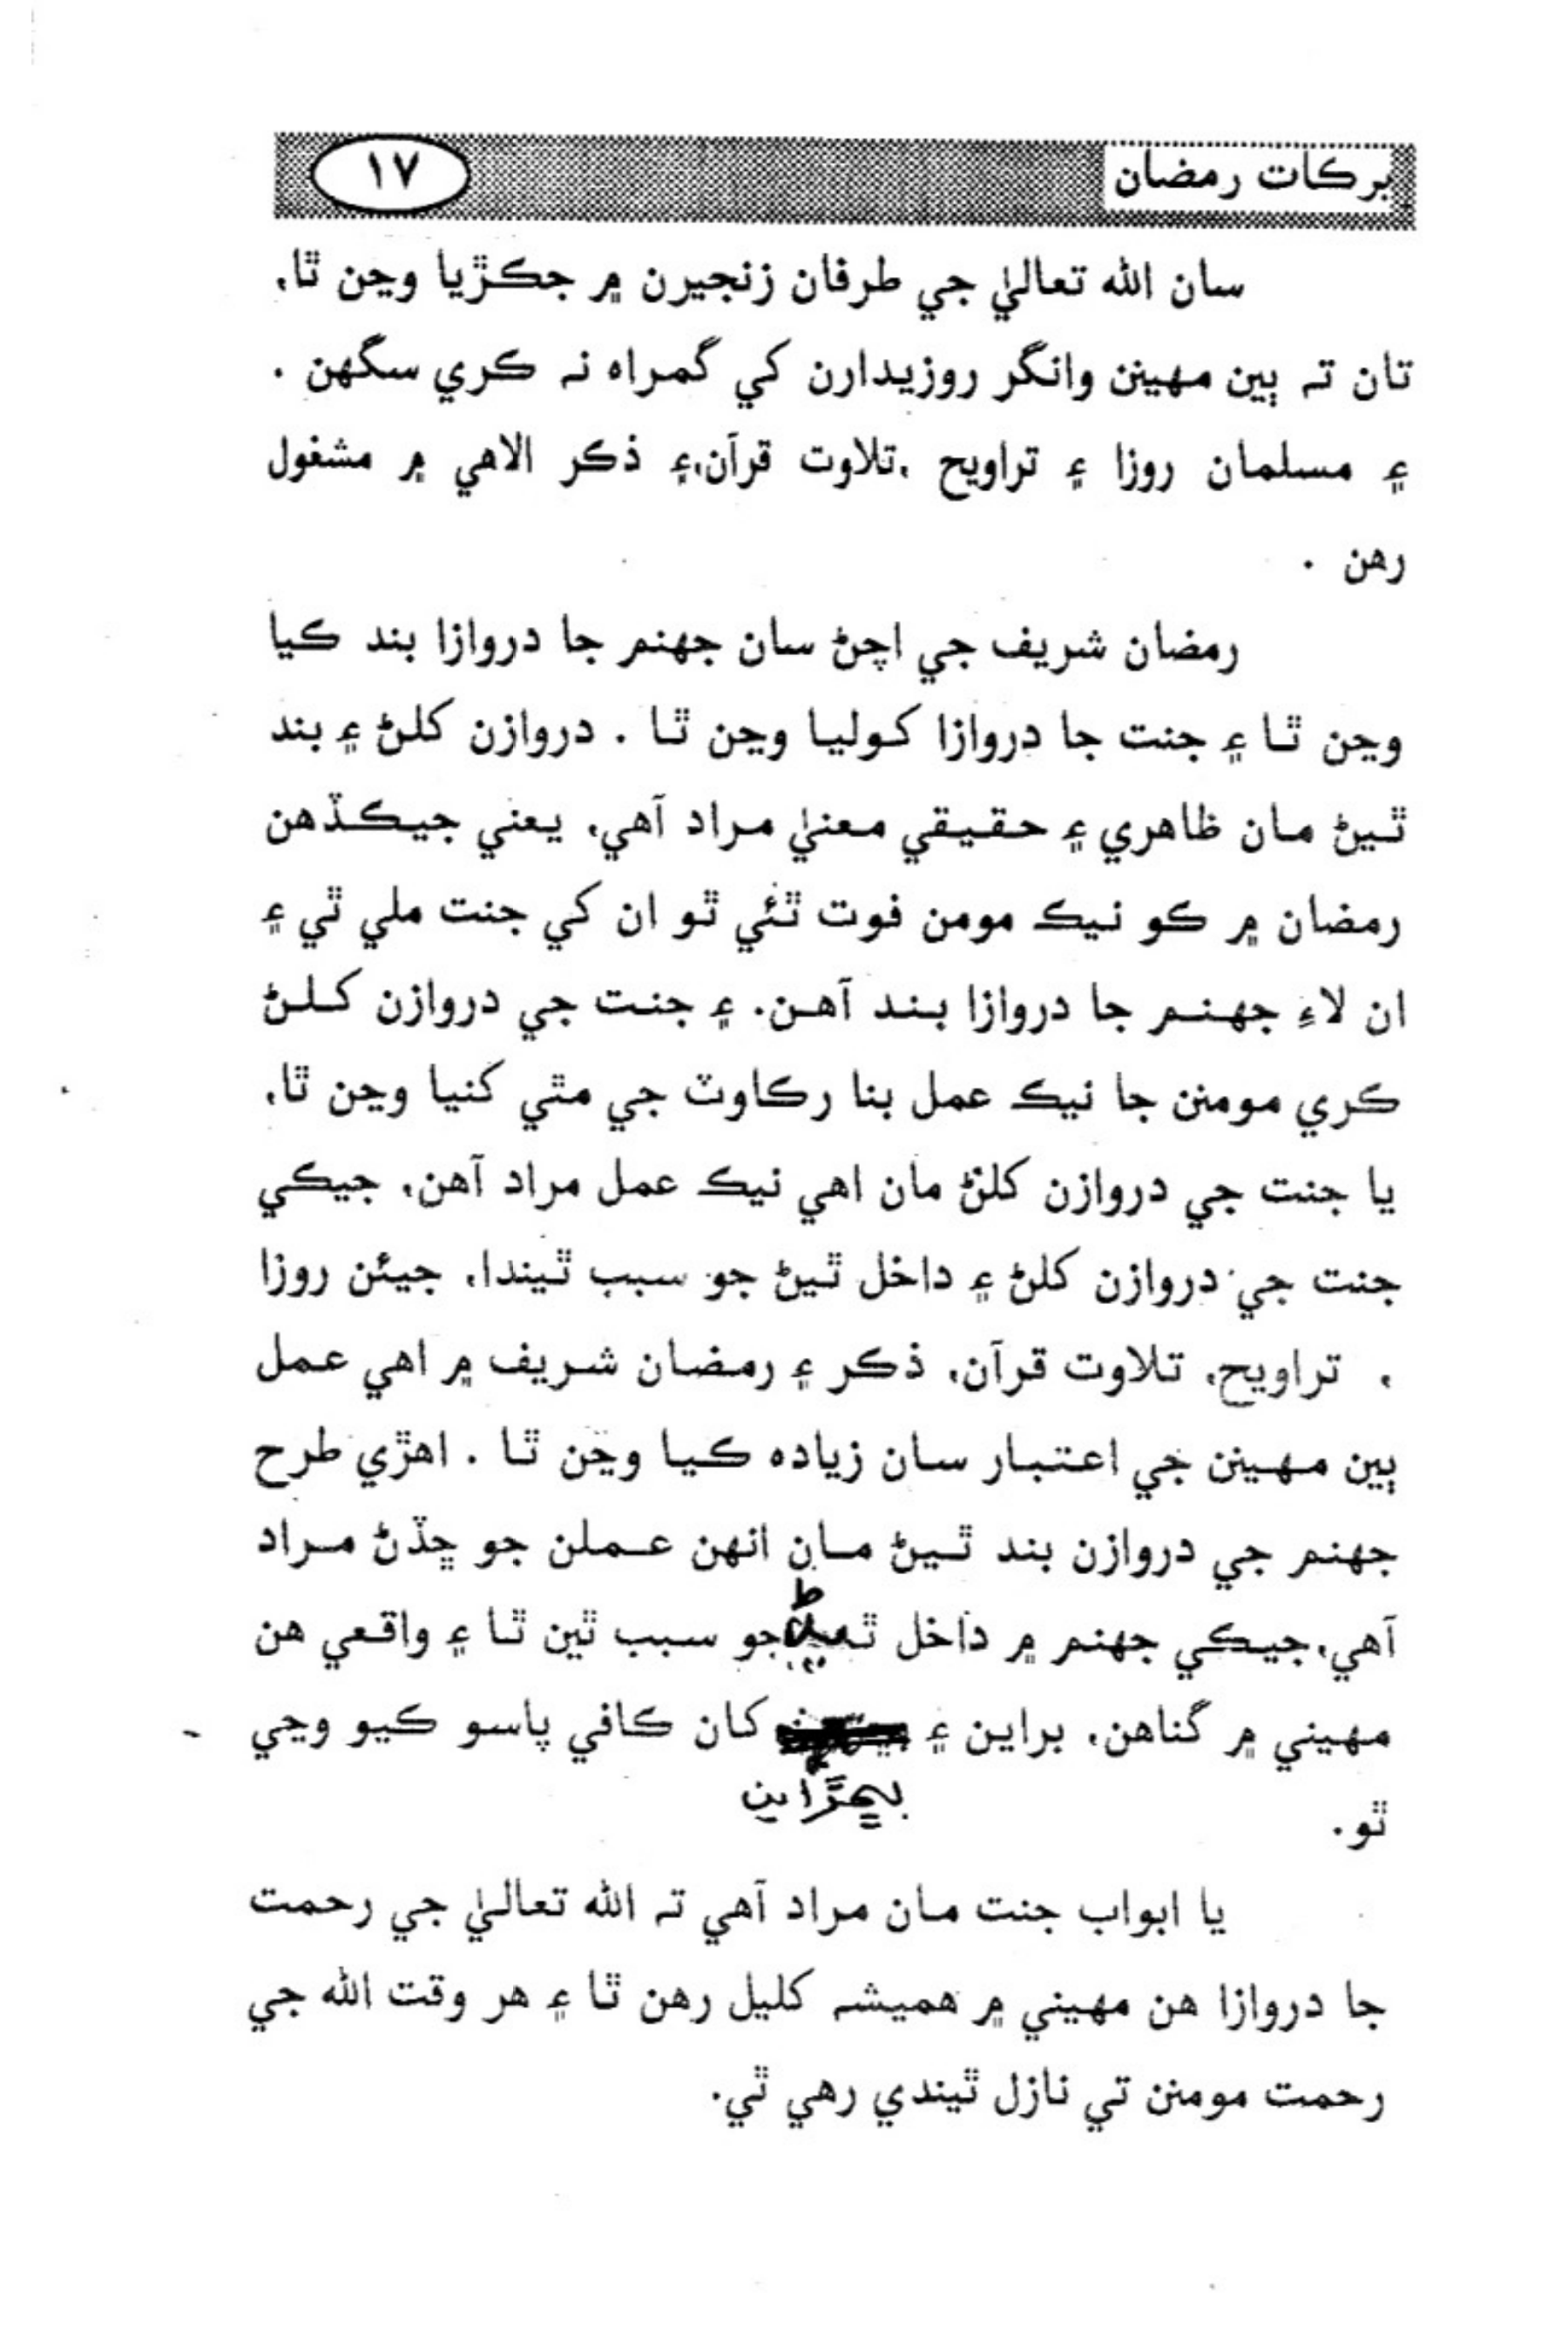 برڪات رمضان
١٧
سان الله تعاليٰ جي طرفان زنجيرن ۾ جڪڙيا وڃن ٿا،
تان تہ ٻين مهينن وانگر روزيدارن کي گمراه نہ ڪري سگهن .
۽ مسلمان روزا ۽ تراويح ،تلاوت قرآن،۽ ذڪر الاهي ۾ مشغول
رهن .
رمضان شريف جي اچڻ سان جهنم جا دروازا بند ڪيا
وڃن ٿا ۽ جنت جا دروازا کوليا وڃن ٿا . دروازن کلڻ ۽ بند
ٿيڻ مان ظاهري ۽ حقيقي معنيٰ مراد آهي، يعني جيڪڏهن
رمضان ۾ ڪو نيڪ مومن فوت ٿئي ٿو ان کي جنت ملي ٿي ۽
ان لاءِ جهنم جا دروازا بند آهن. ۽ جنت جي دروازن کلڻ
ڪري مومنن جا نيڪ عمل بنا رڪاوٽ جي مٿي کنيا وڃن ٿا،
يا جنت جي دروازن کلڻ مان اهي نيڪ عمل مراد آهن، جيڪي
جنت جي دروازن کلڻ ۽ داخل ٿيڻ جو سبب ٿيندا، جيئن روزا
، تراويح، تلاوت قرآن، ذڪر ۽ رمضان شريف ۾ اهي عمل
ٻين مهينن جي اعتبار سان زياده ڪيا وڃن ٿا . اهڙي طرح
جهنم جي دروازن بند ٿيڻ مان انهن عملن جو ڇڏڻ مراد
آهي،جيڪي جهنم ۾ داخل ٿيڻ جو سبب ٿين ٿا ۽ واقعي هن
مهيني ۾ گناهن، براين ۽ کان ڪافي پاسو ڪيو وڃي
ٿو.
يا ابواب جنت مان مراد آهي تہ الله تعاليٰ جي رحمت
جا دروازا هن مهيني ۾ هميشہ کليل رهن ٿا ۽ هر وقت الله جي
رحمت مومنن تي نازل ٿيندي رهي ٿي.